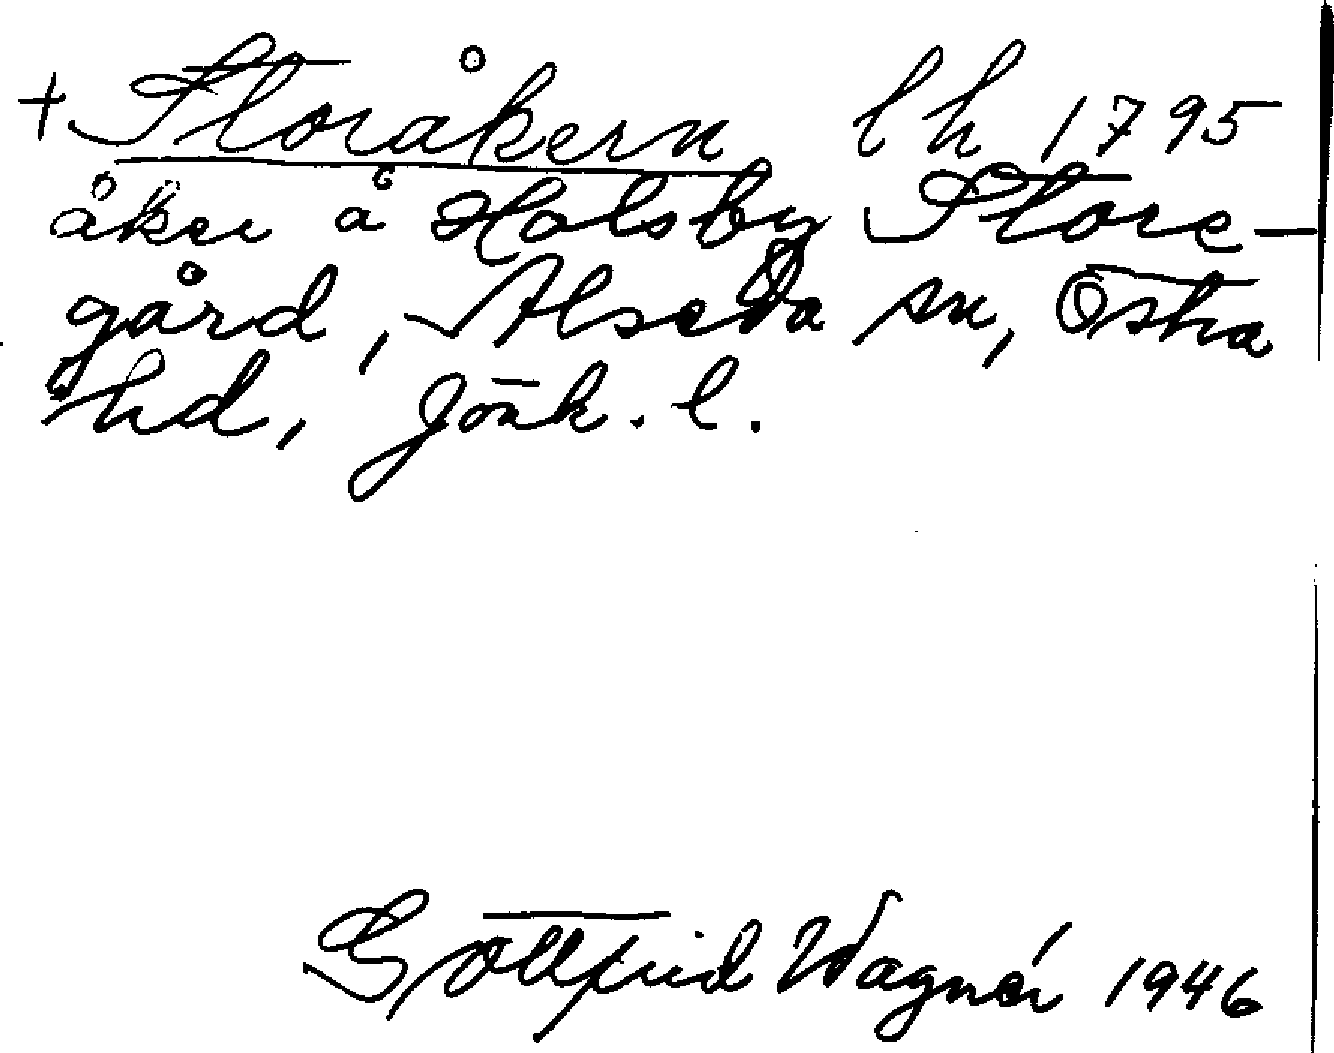 + Storåkern lh 1795
åker å Holsby Store-
gård, Alseda sn, Östra
hd, Jönk. l.
Gottfrid Wagnér 1946